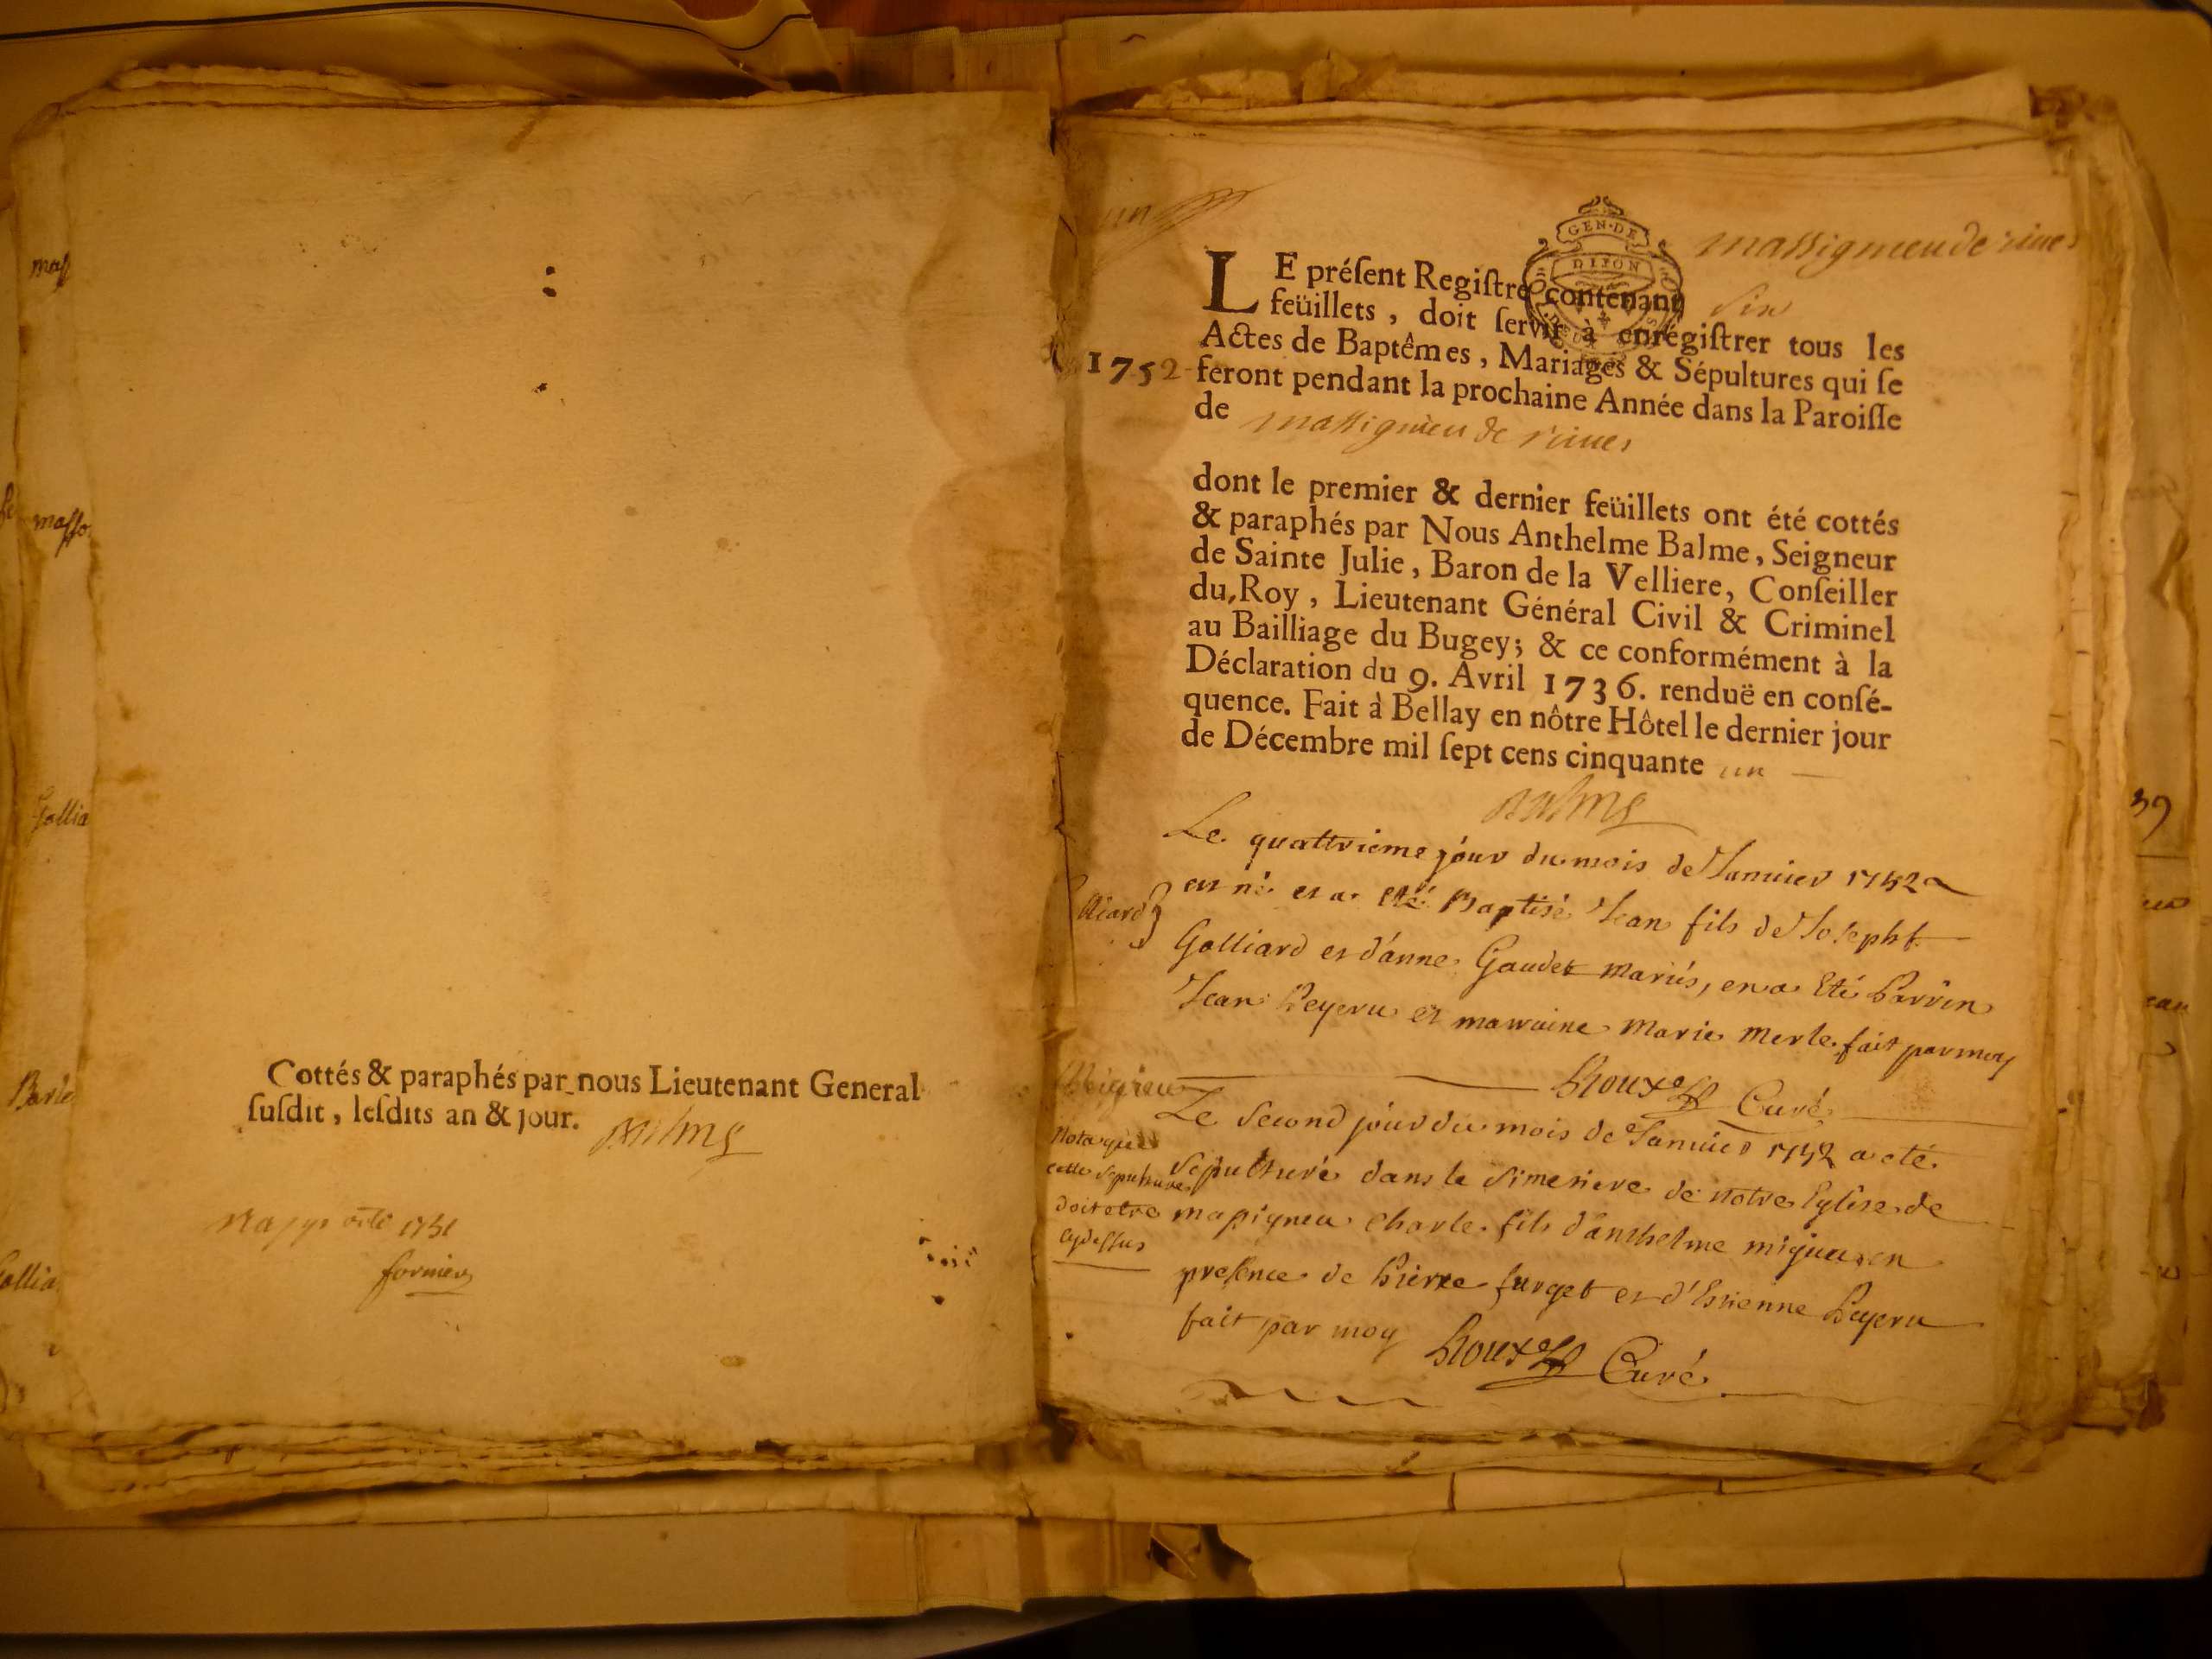 Cottés & paraphés par nous Lieutenant General
ſuſdit, leſdits an & jour.
1751
1752
GEN·DE
DIJON
massignieu de rives
LE préſent Regiſtre contenant six
feüillets, doit ſervir à enrégiſtrer tous les
Actes de Baptêmes, Mariages & Sépultures qui ſe
feront pendant la prochaine Année dans la Paroiſſe
de massignieu de rives
dont le premier & dernier feüillets ont été cottés
& paraphés par Nous Anthelme Balme, Seigneur
de Sainte Julie, Baron de la Velliere, Conſeiller
du Roy, Lieutenant Général Civil & Criminel
au Bailliage du Bugey; & ce conformément à la
Déclaration du 9. Avril 1736. renduë en conſé-
quence. Fait à Bellay en nôtre Hôtel le dernier jour
de Décembre mil ſept cens cinquante un
Balme
Le quattrieme jour du mois de Janvier 1752
est né et a été Baptisé Jean fils de Joseph
Golliard et d'anne Gaudet mariés, en a Eté Parrin
Jean Peyeru et marraine Marie Merle. fait par moy
Roux Curé
Le second jour du mois de Janvier 1752 a eté
sepulturé dans le simetiere de notre Eglise de
massignieu charle fils d'anthelme migieu en
presence de Pierre furget et d'Etienne Peyeru
fait par moy Roux Curé
Nota que
cette sepulture
doit etre
cy dessus
39